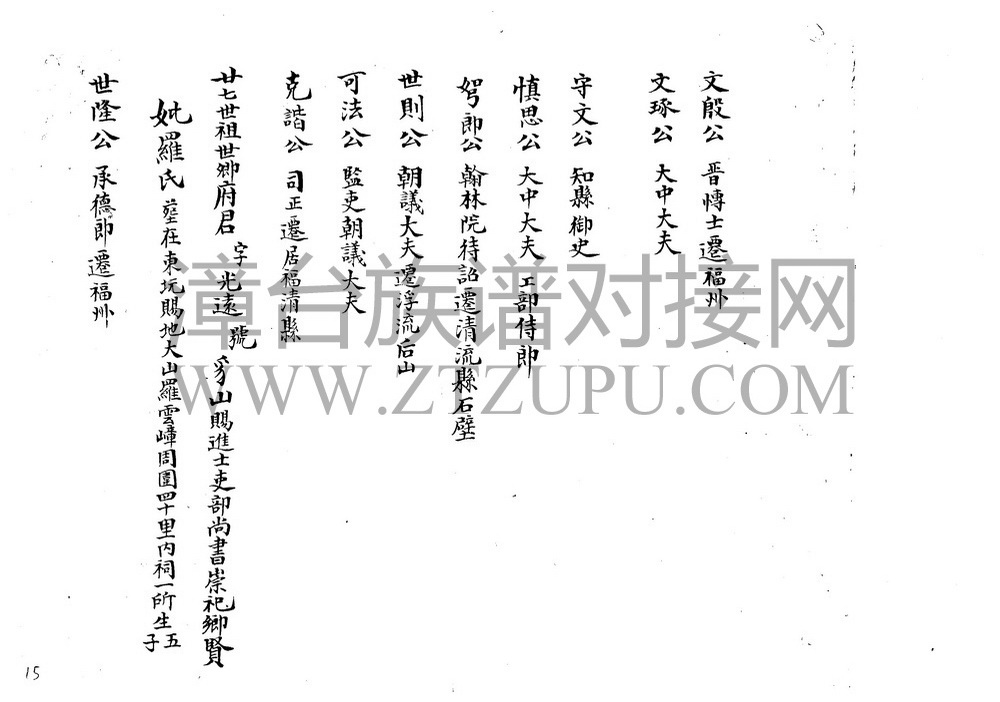 文殷公 晋博士遷福州
文琢公 大中大夫
守文公 知縣御史
慎思公 大中大夫工部侍郎
郎公 翰林院待詔遷清流縣石壁
世則公 朝議大夫遷浮流后山
可法公 監吏朝議大夫
克諧公 司正遷居福清縣
廿七世祖世卿府君 字光遠 號豸山賜進士吏部尚書崇祀鄉賢
妣羅氏 塟在東坑賜地大山羅雲嶂周圍四十里內祠一所生五子
世隆公 承德郎遷福州
漳台族谱对接网
WWW.ZTZUPU.COM
15